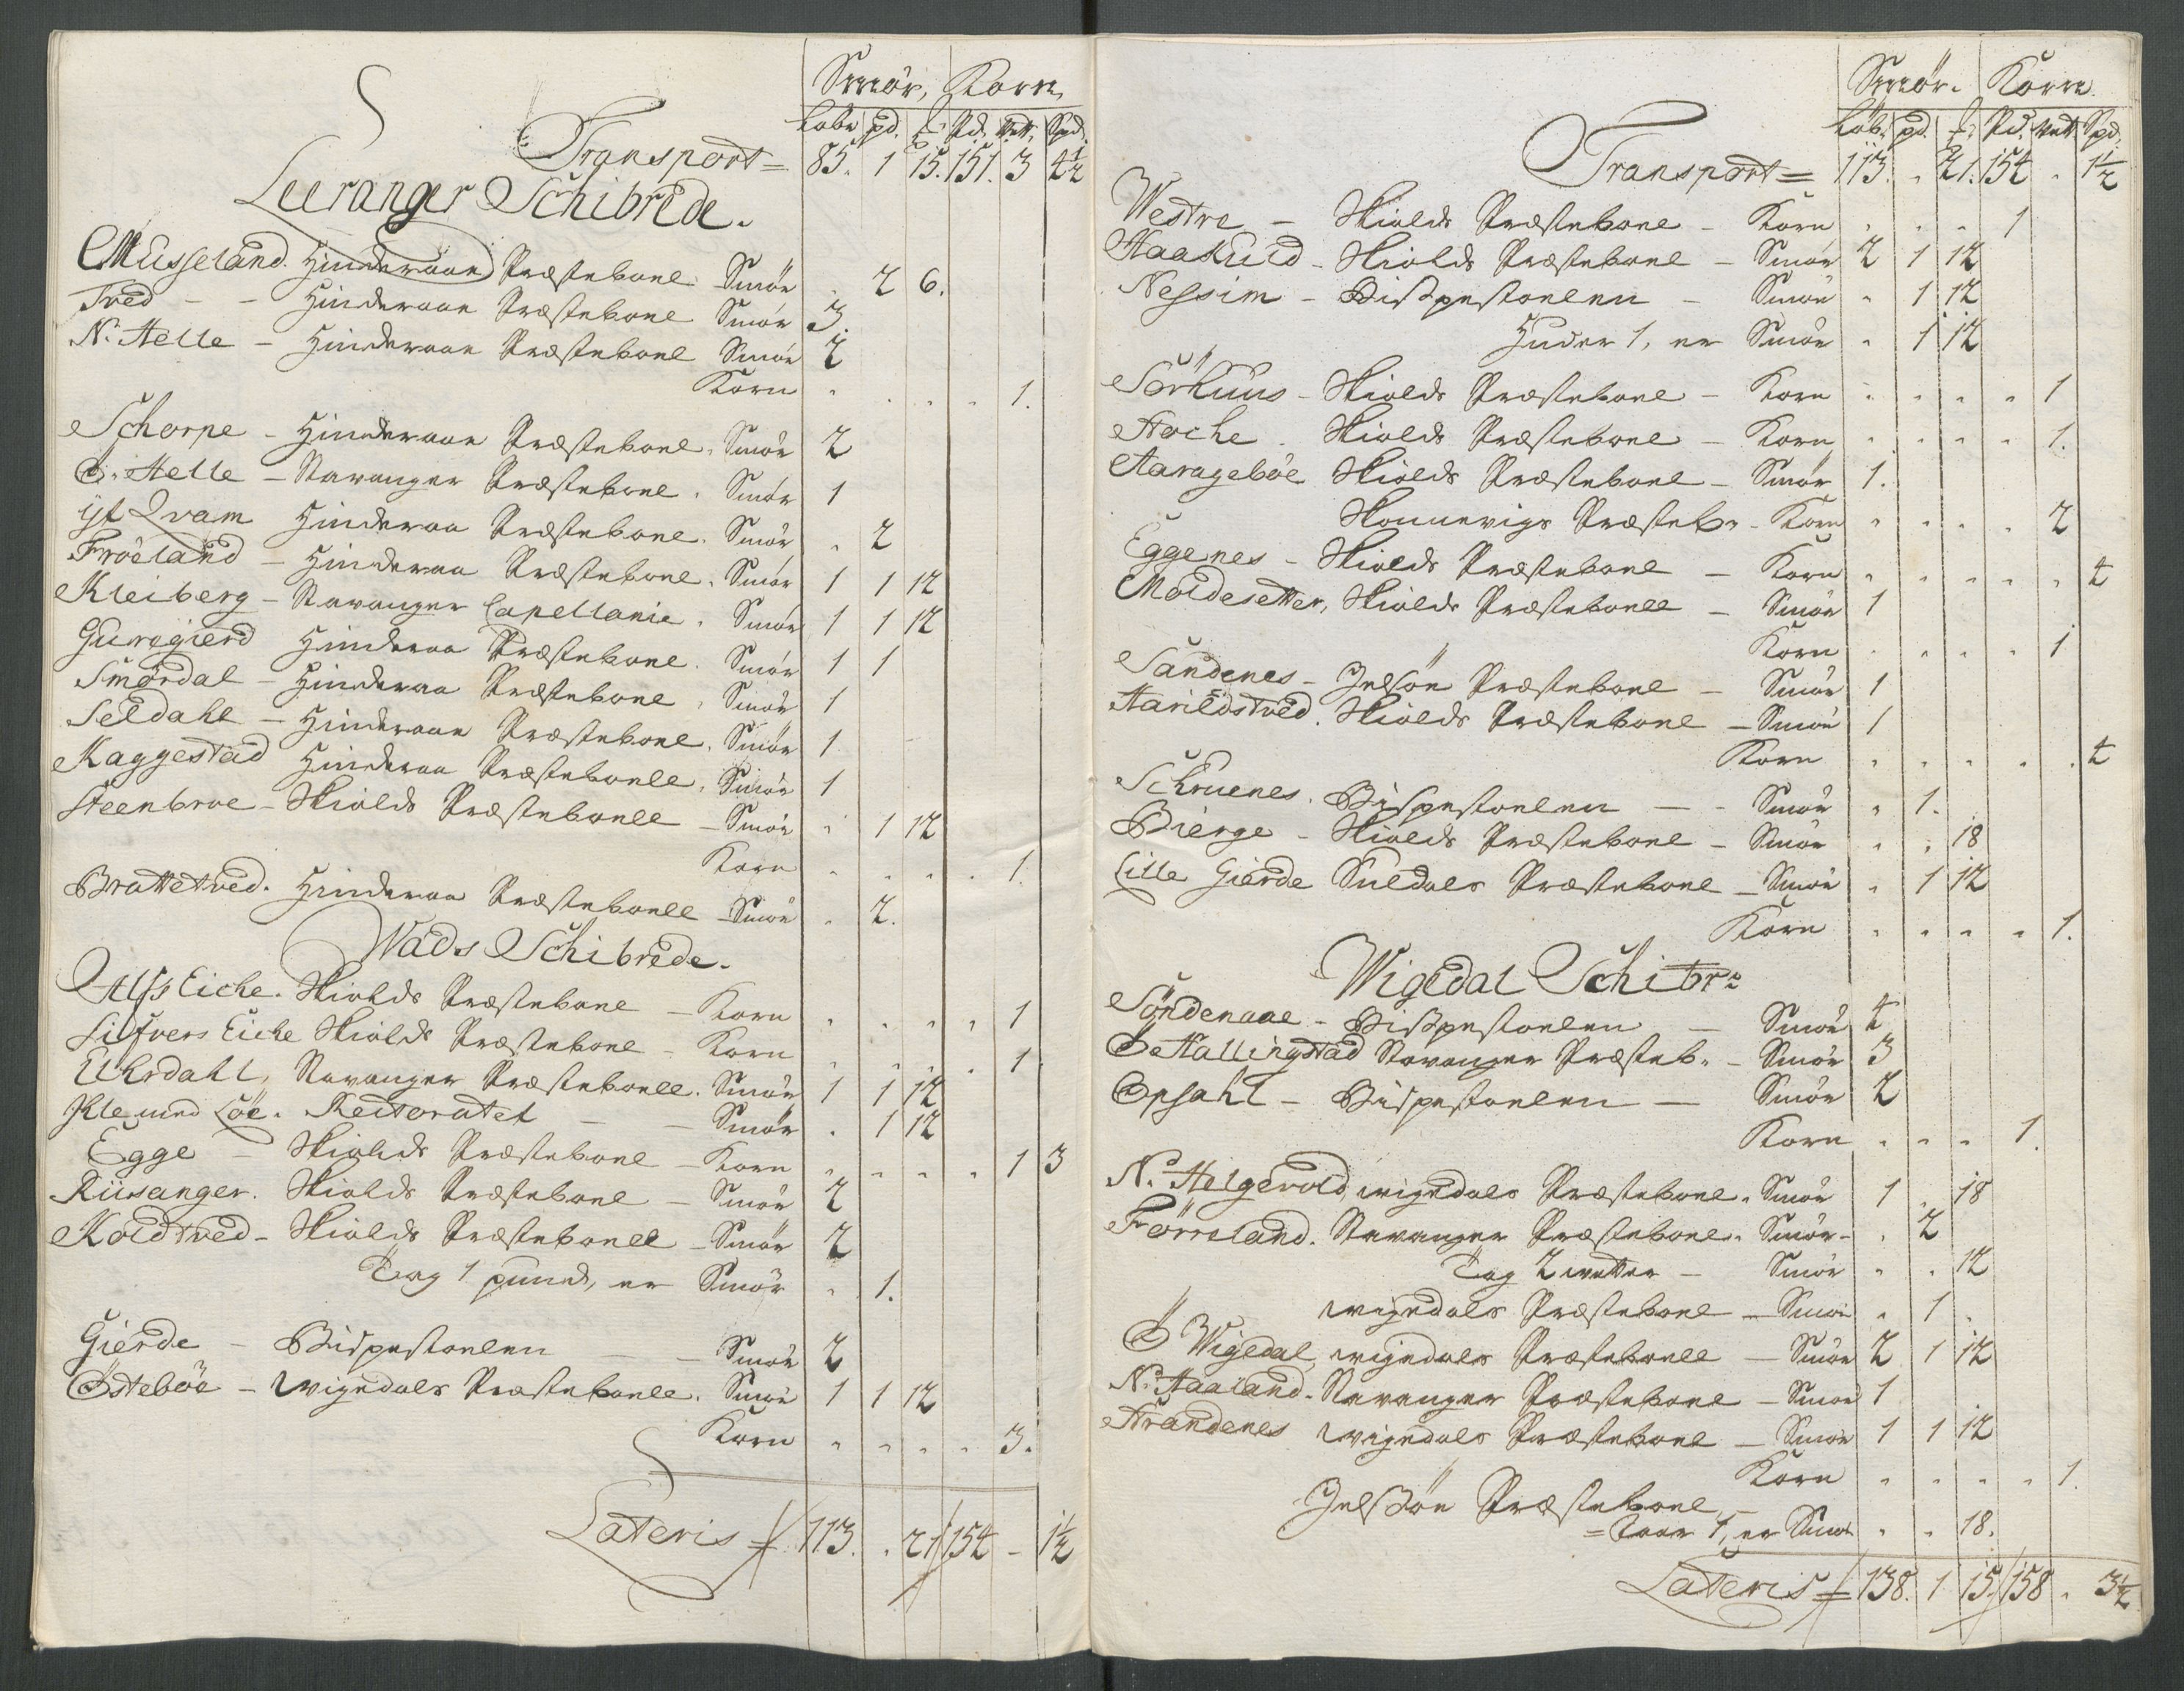 Smör, Korn,
Løbr pd. ℔. Pd. Vett. Spd.
Transport = 85. 1 15. 151. 3 4½
Leeranger Schibrede.
Musseland. Hinderaae Præstebone. Smör . 2 6.
Tved - - Hinderaae Præstebone Smör 3.
N. Helle - Hinderaae Præstebone Smör 2
Korn . . . . 1.
Schorpe - Hinderaae Præstebone. Smör 2
Ö. Helle - Stavanger Præstebone. Smör 1
yt Qvam Hinderaa Præstebone. Smör . 2
Fröeland - Hinderaa Præstebone. Smör 1 1 12
Kleiberg - Stavanger Capellanie. Smör 1 1 12
Guregierd Hinderaa Præstebone. Smör 1 1
Smördal - Hinderaa Præstebone. Smör 1
Seldahl - Hinderaae Præstebone. Smör 1
Kaggestad Hinderaa Præstebonell. Smör 1
Steenbroe - Skiolds Præstebonell - Smör . 1 12
Korn . . . . 1.
Brattetved. Hinderaa Præstebonell - Smör . 2.
Wads Schibrede.
Alfs Eiche. Skiolds Præstebone - Korn . . . . 1
Sifvers Eiche Skiolds Præstebone - Korn . . . . 1
Ehrdahl, Stavanger Præstebonell. Smör 1 1 12
Ille med Löe. Rectoratet - - Smör . 1 12
Egge - Skiolds Præstebone - Korn . . . . 1 3
Riisanger. Skiolds Præstebone - Smör 2
Koldtved - Skiolds Præstebonell - Smör 2
Tag 1 pund, er Smör . 1.
Gierde - Bispestoelen - - Smör 2
Östeböe - Wigedals Præstebonell. Smör 1 1 12
Korn . . . . 3.
Lateris = 113. . 21 154 - 1½
Smör. Korn.
Löb. pd. ℔. Pd. Vett Spd.
Transport = 113. . 21. 154 . 1½
Westre - Skiolds Præstebone - Korn . . . 1
Haakuld - Skiolds Præstebone - Smör 2 1 12
Nessim - Bispestoelen - Smör . 1 12
Huder 1, er Smör . 1 12
Sørhuus - Skiolds Præstebone - Korn . . . . 1
Hoche. Skiolds Præstebone - Korn . . . . 1.
Aarageböe Skiolds Præstebone - Smör 1.
Skonnevigs Præsteb. - Korn . . . . 2
Eggenes - Skiolds Præstebone - Korn . . . . . 4
Moldesetter, Skiolds Præstebonell - Smör 1
Korn . . . . 1
Sandenes - Jelsöe Præstebone - Smör 1
Harildstved. Skiolds Præstebone - Smör 1
Korn . . . . . 4
Schruenes. Bispestoelen - - Smör . 1.
Bierge - Skiolds Præstebone - Smör . . 18
Lille Gierde Suldals Præstebone - Smör . 1 12
Korn . . . . 1.
Wigedal Schibr:
Söndenaae - Bispestoelen - Smör 4
Ö Hallingstad Stavanger Præsteb. - Smör 3
Opsahl - Bispestoelen - Smör 2
Korn . . . 1.
N. Helgevold, wigedals Præstebone. Smör 1 . 18
Førreland. Stavanger Præstebone. Smör - . 2
Tag 2 vetter - Smör . . 12
wigedals Præstebone - Smör . 1 .
Ö Wigedal, wigedals Præstebonell - Smör 2 1 12
N. Haaland. Stavanger Præstebone - Smör 1
Trandenes Wigedals Præstebone - Smör 1 1 12
Korn . . . . 1.
Jelsöe Præstebone -
= Saar 1, er Smör . . 18.
Lateris = 138. 1 15 158 . 3½